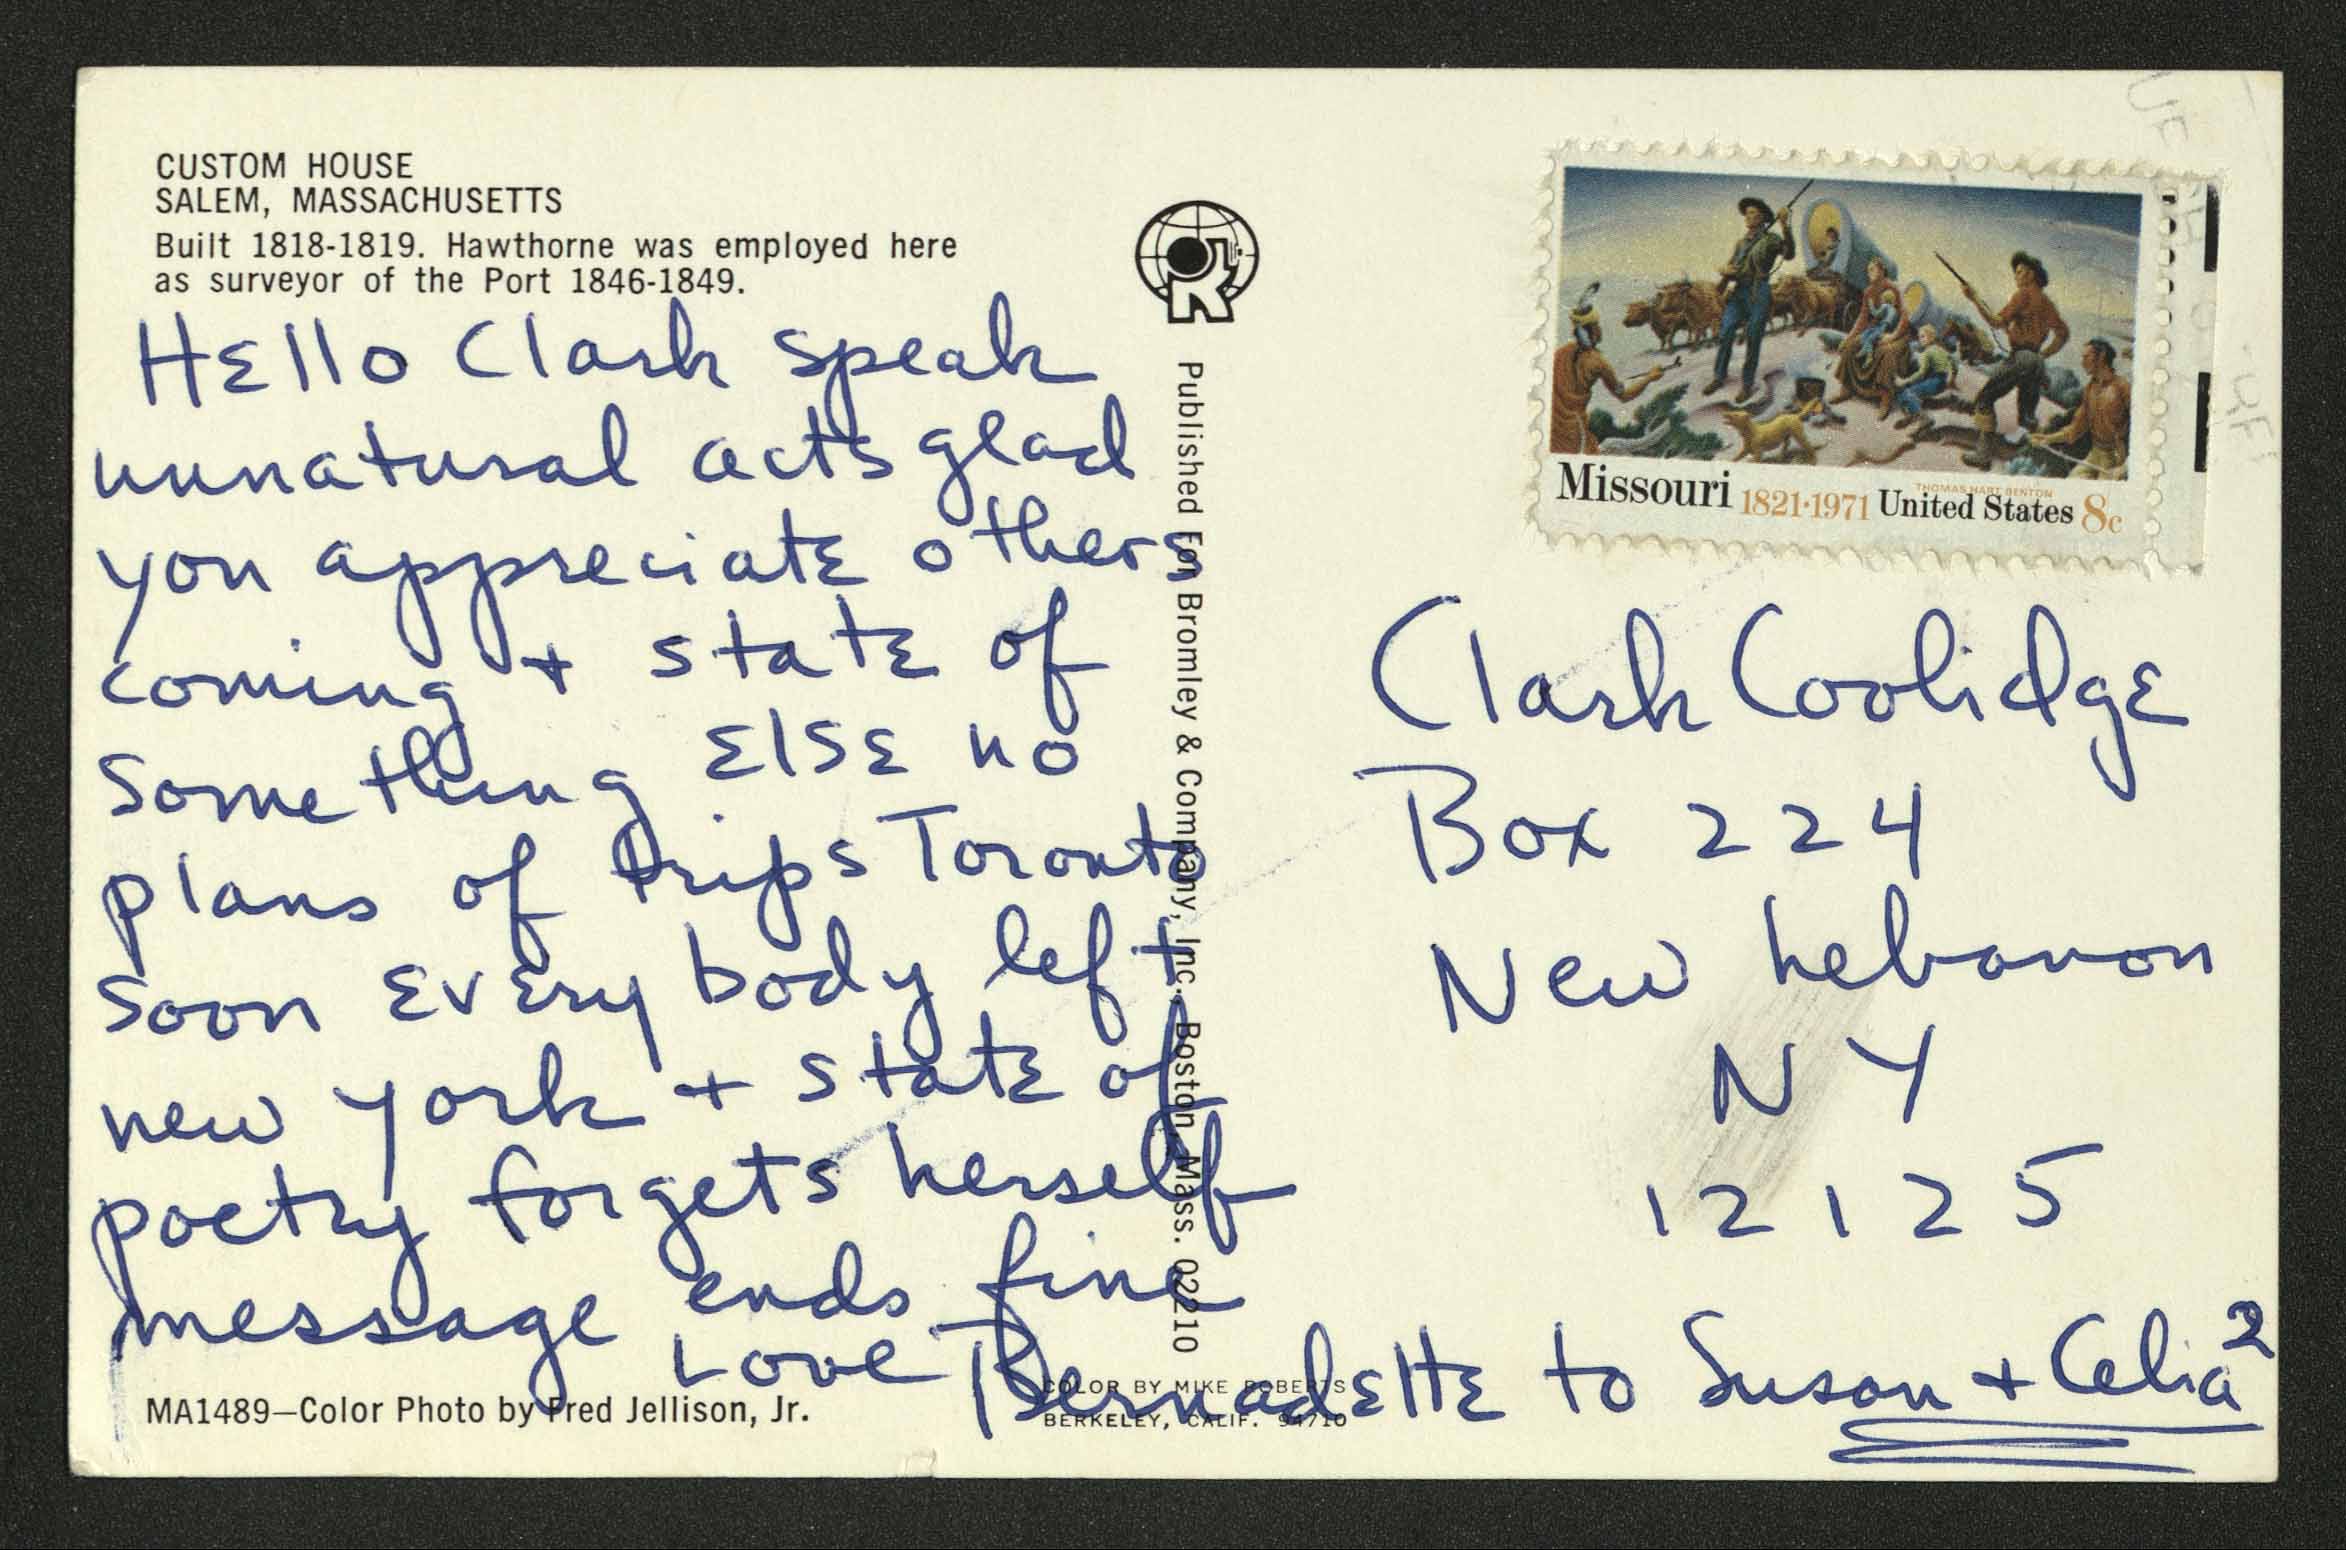 CUSTOM HOUSE
SALEM, MASSACHUSETTS
Built 1818-1819. Hawthorne was employed here
as surveyor of the Port 1846-1849.
Hello Clark speak
unnatural acts glad
you appreciate others
coming + state of
something else no
plans of trips Toronto
soon everybody left
new york + state of
poetry forgets herself
message ends fine
Love Bernadette to Susan + Celia²
MA1489—Color Photo by Fred Jellison, Jr.
COLOR BY MIKE ROBERTS
BERKELEY, CALIF. 94710
Published For Bromley & Company, Inc., Boston, Mass. 02210
THOMAS HART BENTON
Missouri 1821·1971 United States 8c
Clark Coolidge
Box 224
New Lebanon
NY
12125